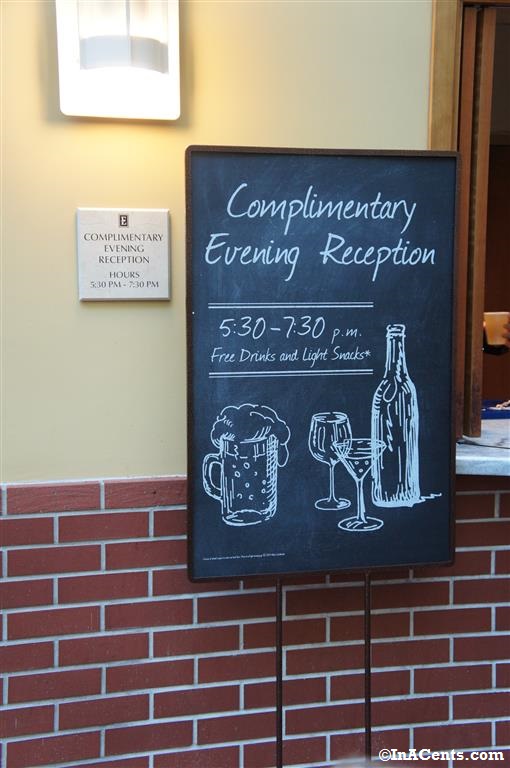 E
COMPLIMENTARY
EVENING
RECEPTION
HOURS
5:30 PM - 7:30 PM
Complimentary
Evening Reception
5:30-7:30 p.m.
Free Drinks and Light Snacks*
©InACents.com